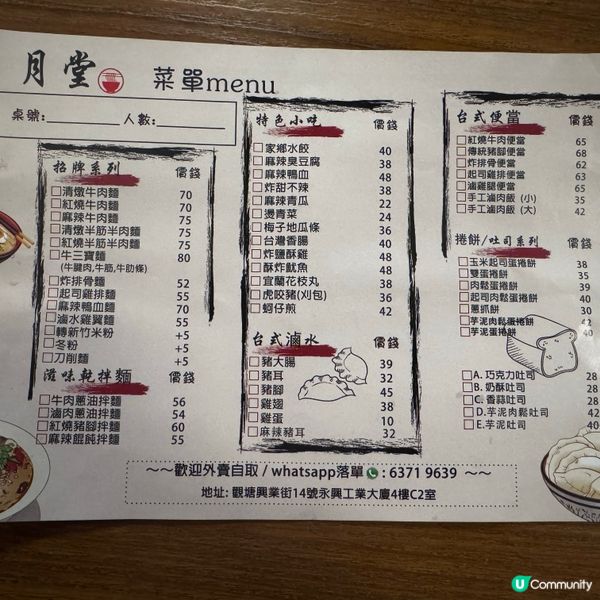 月堂 菜單menu
桌號:________ 人數:________
招牌系列 價錢
清燉牛肉麵 70
紅燒牛肉麵 70
麻辣牛肉麵 75
清燉半筋半肉麵 75
紅燒半筋半肉麵 75
牛三寶麵 80
(牛腱肉,牛筋,牛肋條)
炸排骨麵 52
起司雞排麵 55
麻辣鴨血麵 50
滷水雞翼麵 55
轉新竹米粉 +5
冬粉 +5
刀削麵 +5
滋味乾拌麵 價錢
牛肉蔥油拌麵 56
滷肉蔥油拌麵 54
紅燒豬腳拌麵 60
麻辣餛飩拌麵 55
特色小吃 價錢
家鄉水餃 40
麻辣臭豆腐 38
麻辣鴨血 48
炸甜不辣 38
麻辣青瓜 22
燙青菜 24
梅子地瓜條 36
台灣香腸 40
炸鹽酥雞 48
酥炸魷魚 48
宜蘭花枝丸 38
虎咬豬(刈包) 36
蚵仔煎 42
台式滷水 價錢
豬大腸 39
豬耳 32
豬腳 45
雞翅 38
雞蛋 10
麻辣豬耳 32
台式便當 價錢
紅燒牛肉便當 65
傳統豬腳便當 68
炸排骨便當 62
起司雞排便當 63
滷雞腿便當 65
手工滷肉飯 (小) 35
手工滷肉飯 (大) 42
捲餅/吐司系列 價錢
玉米起司蛋捲餅 38
雙蛋捲餅 35
肉鬆蛋捲餅 39
起司肉鬆蛋捲餅 40
蔥抓餅 30
芋泥肉鬆蛋捲餅 42
芋泥蛋捲餅 40
A. 巧克力吐司 38
B. 奶酥吐司 38
C. 香蒜吐司 38
D.芋泥肉鬆吐司 42
E.芋泥吐司 40
～～歡迎外賣自取 / whatsapp落單 : 6371 9639 ～～
地址: 觀塘興業街14號永興工業大廈4樓C2室
U Community